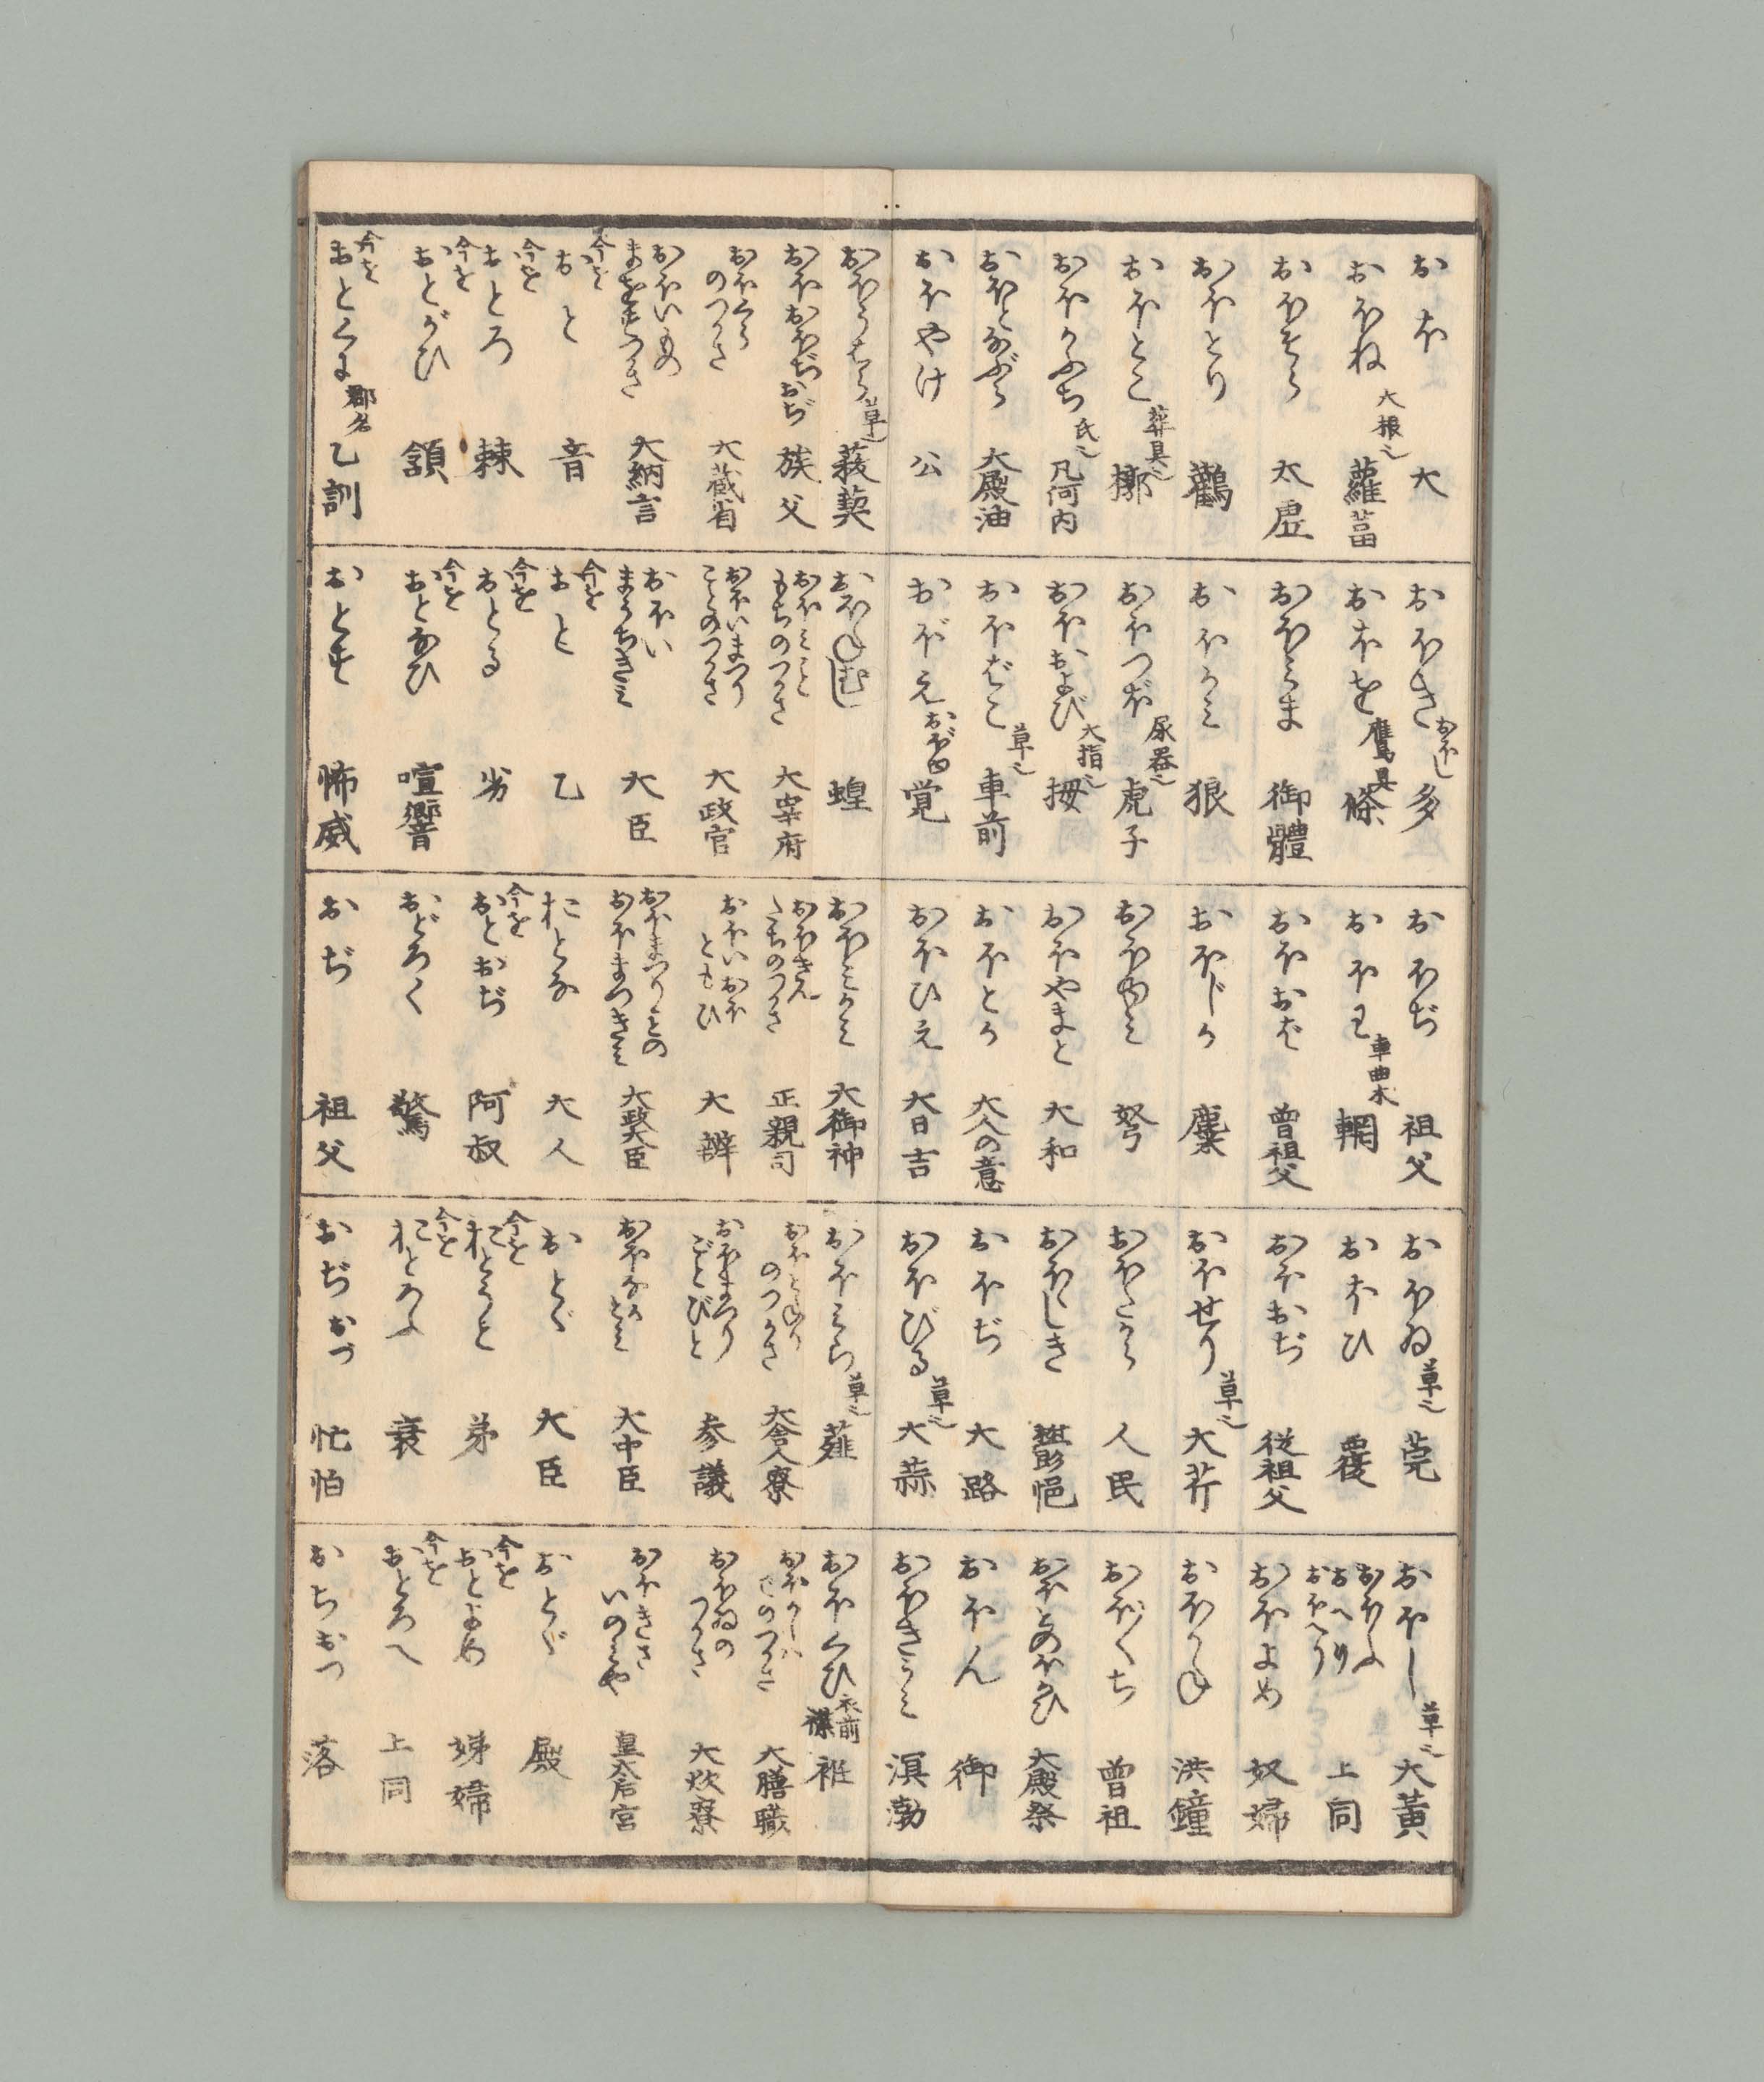 おほ 大
おほき おほし 多
おほぢ 祖父
おほゐ 草也 莞
おほし 草也 大黄
おほね 大根也 蘿菖
おほを 鷹具 絛
おほわ 車曲木 輞
おほひ 覆
おほふ おへり おほへり 上同
おほそら 太虚
おほみま 御體
おほおば 曽祖父
おほおぢ 従祖父
おほよめ 奴婦
おほとり 鸛
おほかみ 狼
おほじか 麋
おほせり 草也 大芹
おほかね 洪鐘
おほとこ 葬具也 槨
おほつぼ 尿器也 虎子
おほゆみ 弩
おほたから 人民
おほぐち 曽祖
おほかふち 氏也 凡河内
おほおよび 大指也 拇
おほやまと 大和
おほしき 欝悒
おほとのほかひ 大殿祭
おほとなぶら 大殿油
おほばこ 草也 車前
おほとか 大人の意
おほぢ 大路
おほん 御
おほやけ 公
おぼえ おぼゆ 覚
おほひえ 大日吉
おほびる 草也 大蒜
おほきうみ 溟渤
おほうはら 草也 菝葜
おほねむし 蝗
おほみかみ 大御神
おほみら 草也 薤
おほくひ 衣前襟 袵
おほおほぢおぢ 族父
おほみこともちのつかさ 大宰府
おほきんたちのつかさ 正親司
おほとねりのつかさ 大舎人寮
おほかしはでのつかさ 大膳職
おほくらのつかさ 大蔵省
おほいまつりことのつかさ 大政官
おほいおほともひ 大辨
おほまつりごとびと 参議
おほゐのつかさ 大炊寮
おほいものまをすつかさ 大納言
おほいまうちきみ 大臣
おほまつりことのおほまつきみ 大政大臣
おほなかとみ 大中臣
おほきさいのみや 皇太后宮
今を おと 音
今を おと 乙
おとな 大人
おとど 大臣
おとど 殿
今を おとろ 棘
今を おとる 劣
今を おとおぢ 阿叔
今を おとうと 弟
今を おとよめ 娣婦
今を おとがひ 頷
今を おとなひ 喧響
おどろく 驚
今を おとろふ 衰
今を おとろへ 上同
今を おとくに 郡名 乙訓
おとす 怖威
おぢ 祖父
おぢおづ 忙怕
おちおつ 落